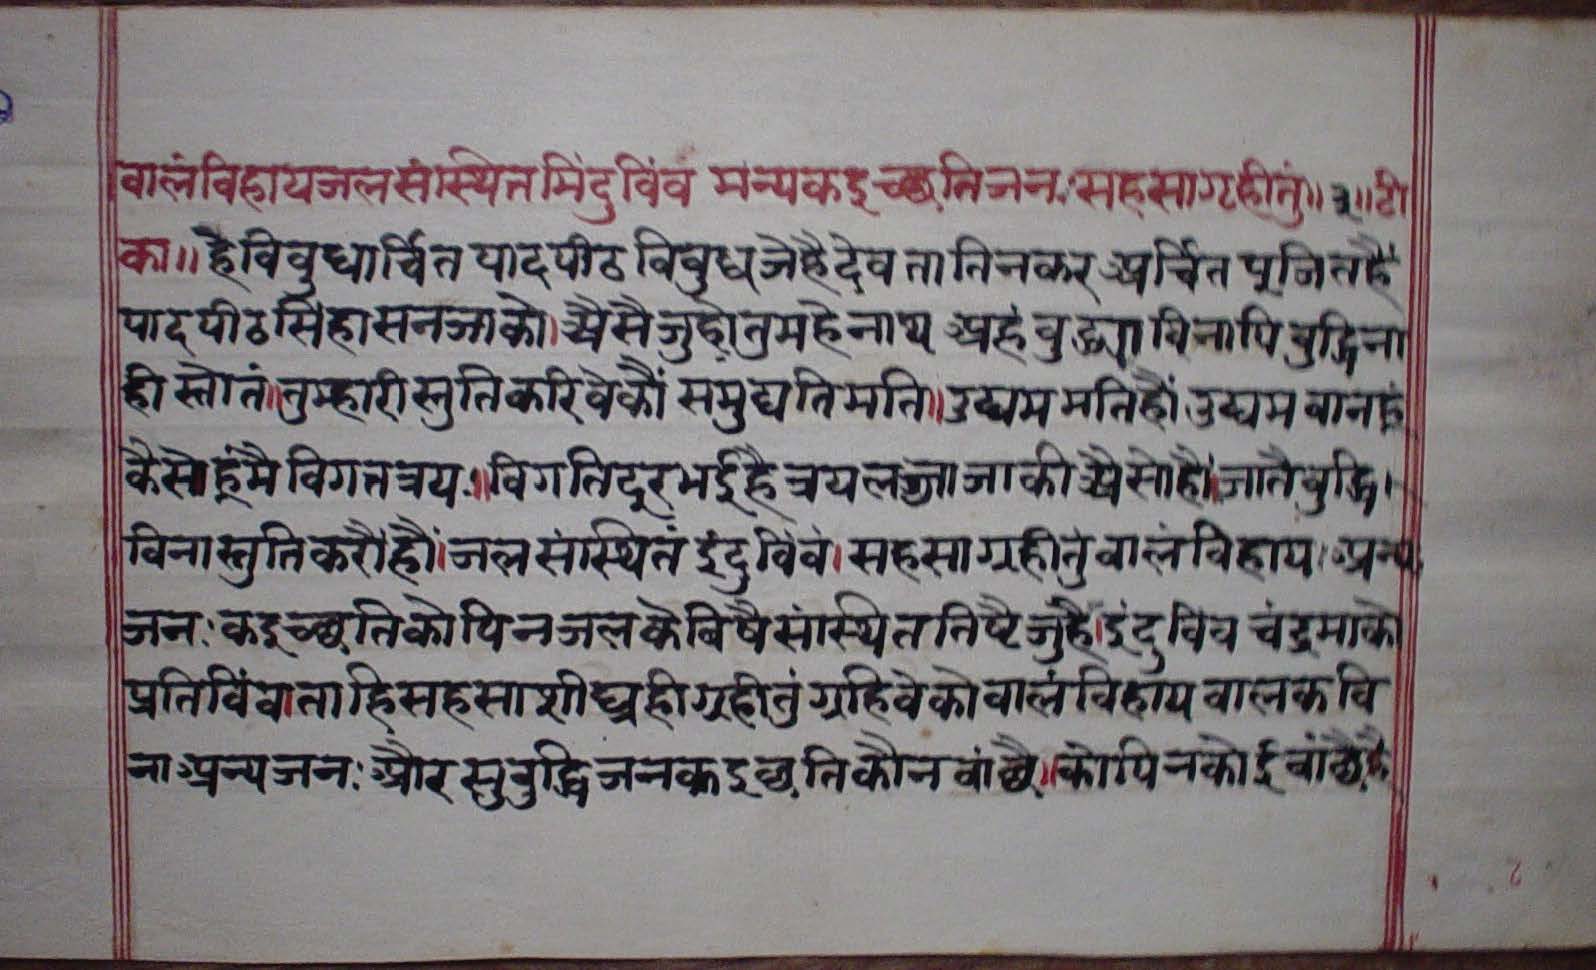 वालंविहायजलसंस्थितमिंदुविंवं मन्यकइच्छतिजनःसहसाग्रहीतुं॥३॥टी
का॥हैविवुधार्चितपादपीठविवुधजेहैदेवतातिनकरअर्चितपूजितहैं
पादपीठसिंहासनजाको।अैसैजुहोतुमहेनाथअहंवुद्ध्याविनापिवुद्धिना
हीस्तोतं॥तुम्हारीस्तुतिकरिवेकौंसमुद्यतिमति॥उद्यममतिहौंउद्यमवानहूं
कैसोहूंमैविगतत्रयः॥विगतिदूरभईहैत्रयलज्जाजाकीअैसोहौं॥जातैवुद्धि।
विनास्तुतिकरौंहौं।जलसंस्थितंइंदुविंवं।सहसाग्रहीतुंवालंविहाय।अन्य
जनःकइच्छतिकोपिनजलकेबिषैसंस्थिततिष्टैजुहैं।इंदुविंवचंद्रमाको
प्रतिविंव।ताहिसहसाशीघ्रहीग्रहीतुंग्रहिवेकोवालंविहायवालकवि
नाअन्यजनःऔरसुवुद्धिजनकइछतिकौनवांछै॥कोपिनकोईवांछैहै